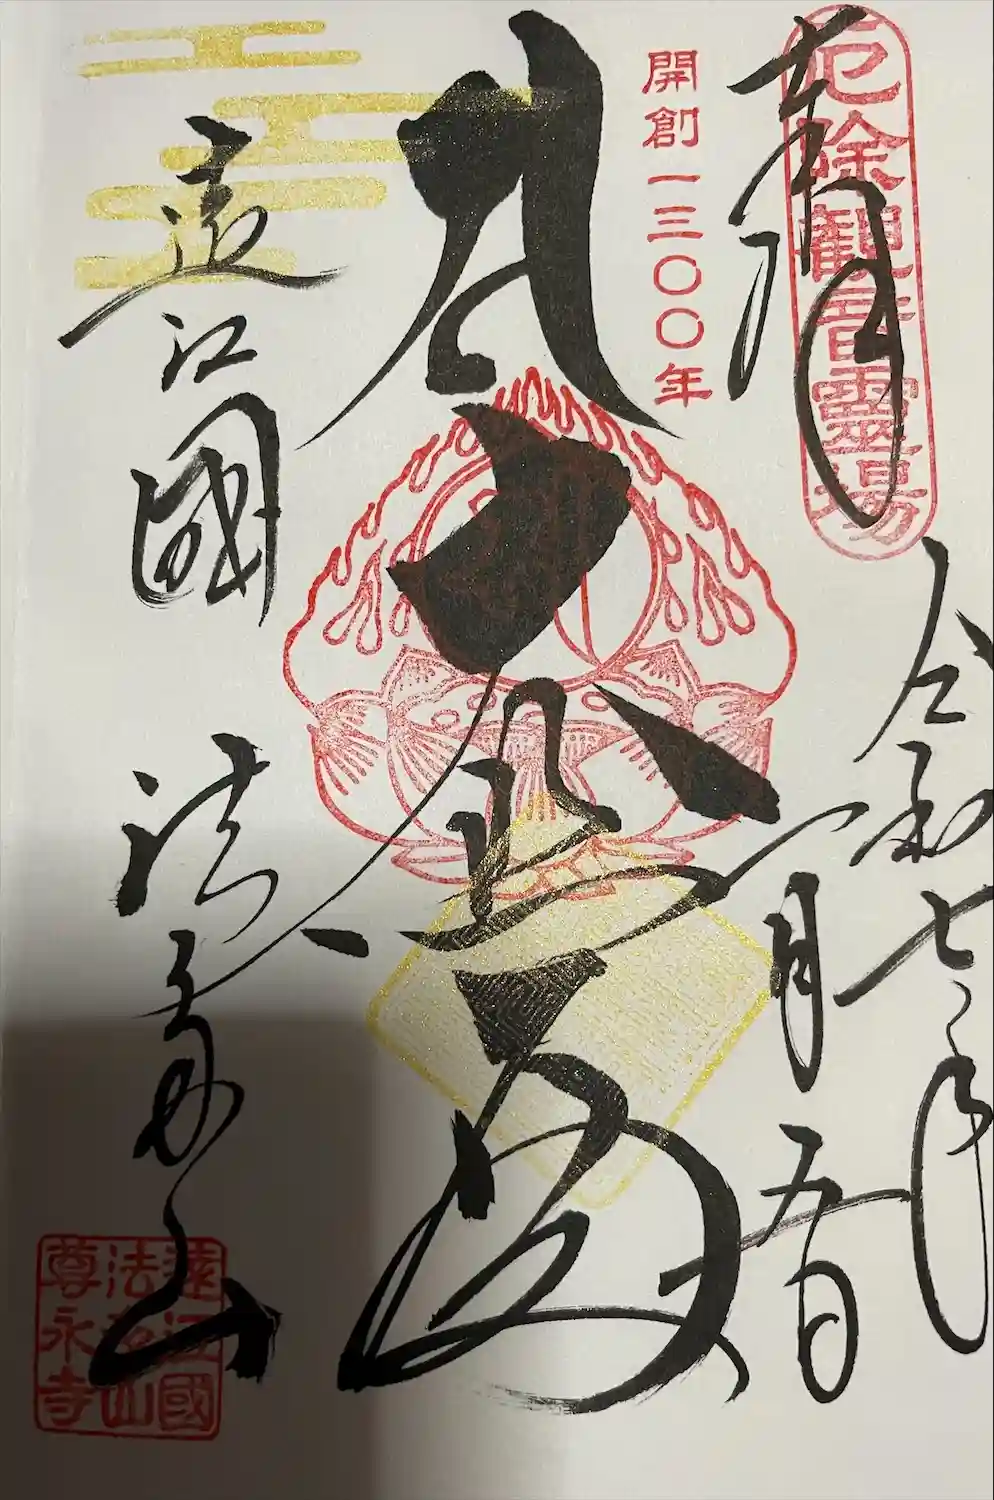 厄除観音靈場
奉拝
令和七年
一月五日
開創一三〇〇年
遠江國 法多山
遠江國
法多山
尊永寺